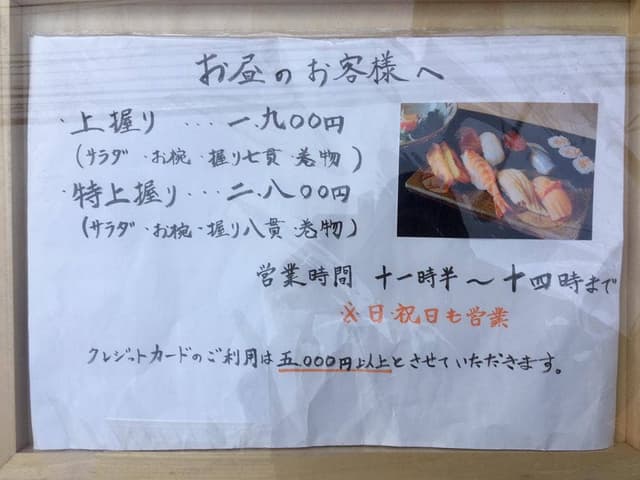 お昼のお客様へ
・上握り・・・一.九〇〇円
(サラダ・お椀・握り七貫・巻物)
・特上握り・・・二.八〇〇円
(サラダ・お椀・握り八貫・巻物)
営業時間 十一時半〜十四時まで
※日・祝日も営業
クレジットカードのご利用は五.000円以上とさせていただきます。